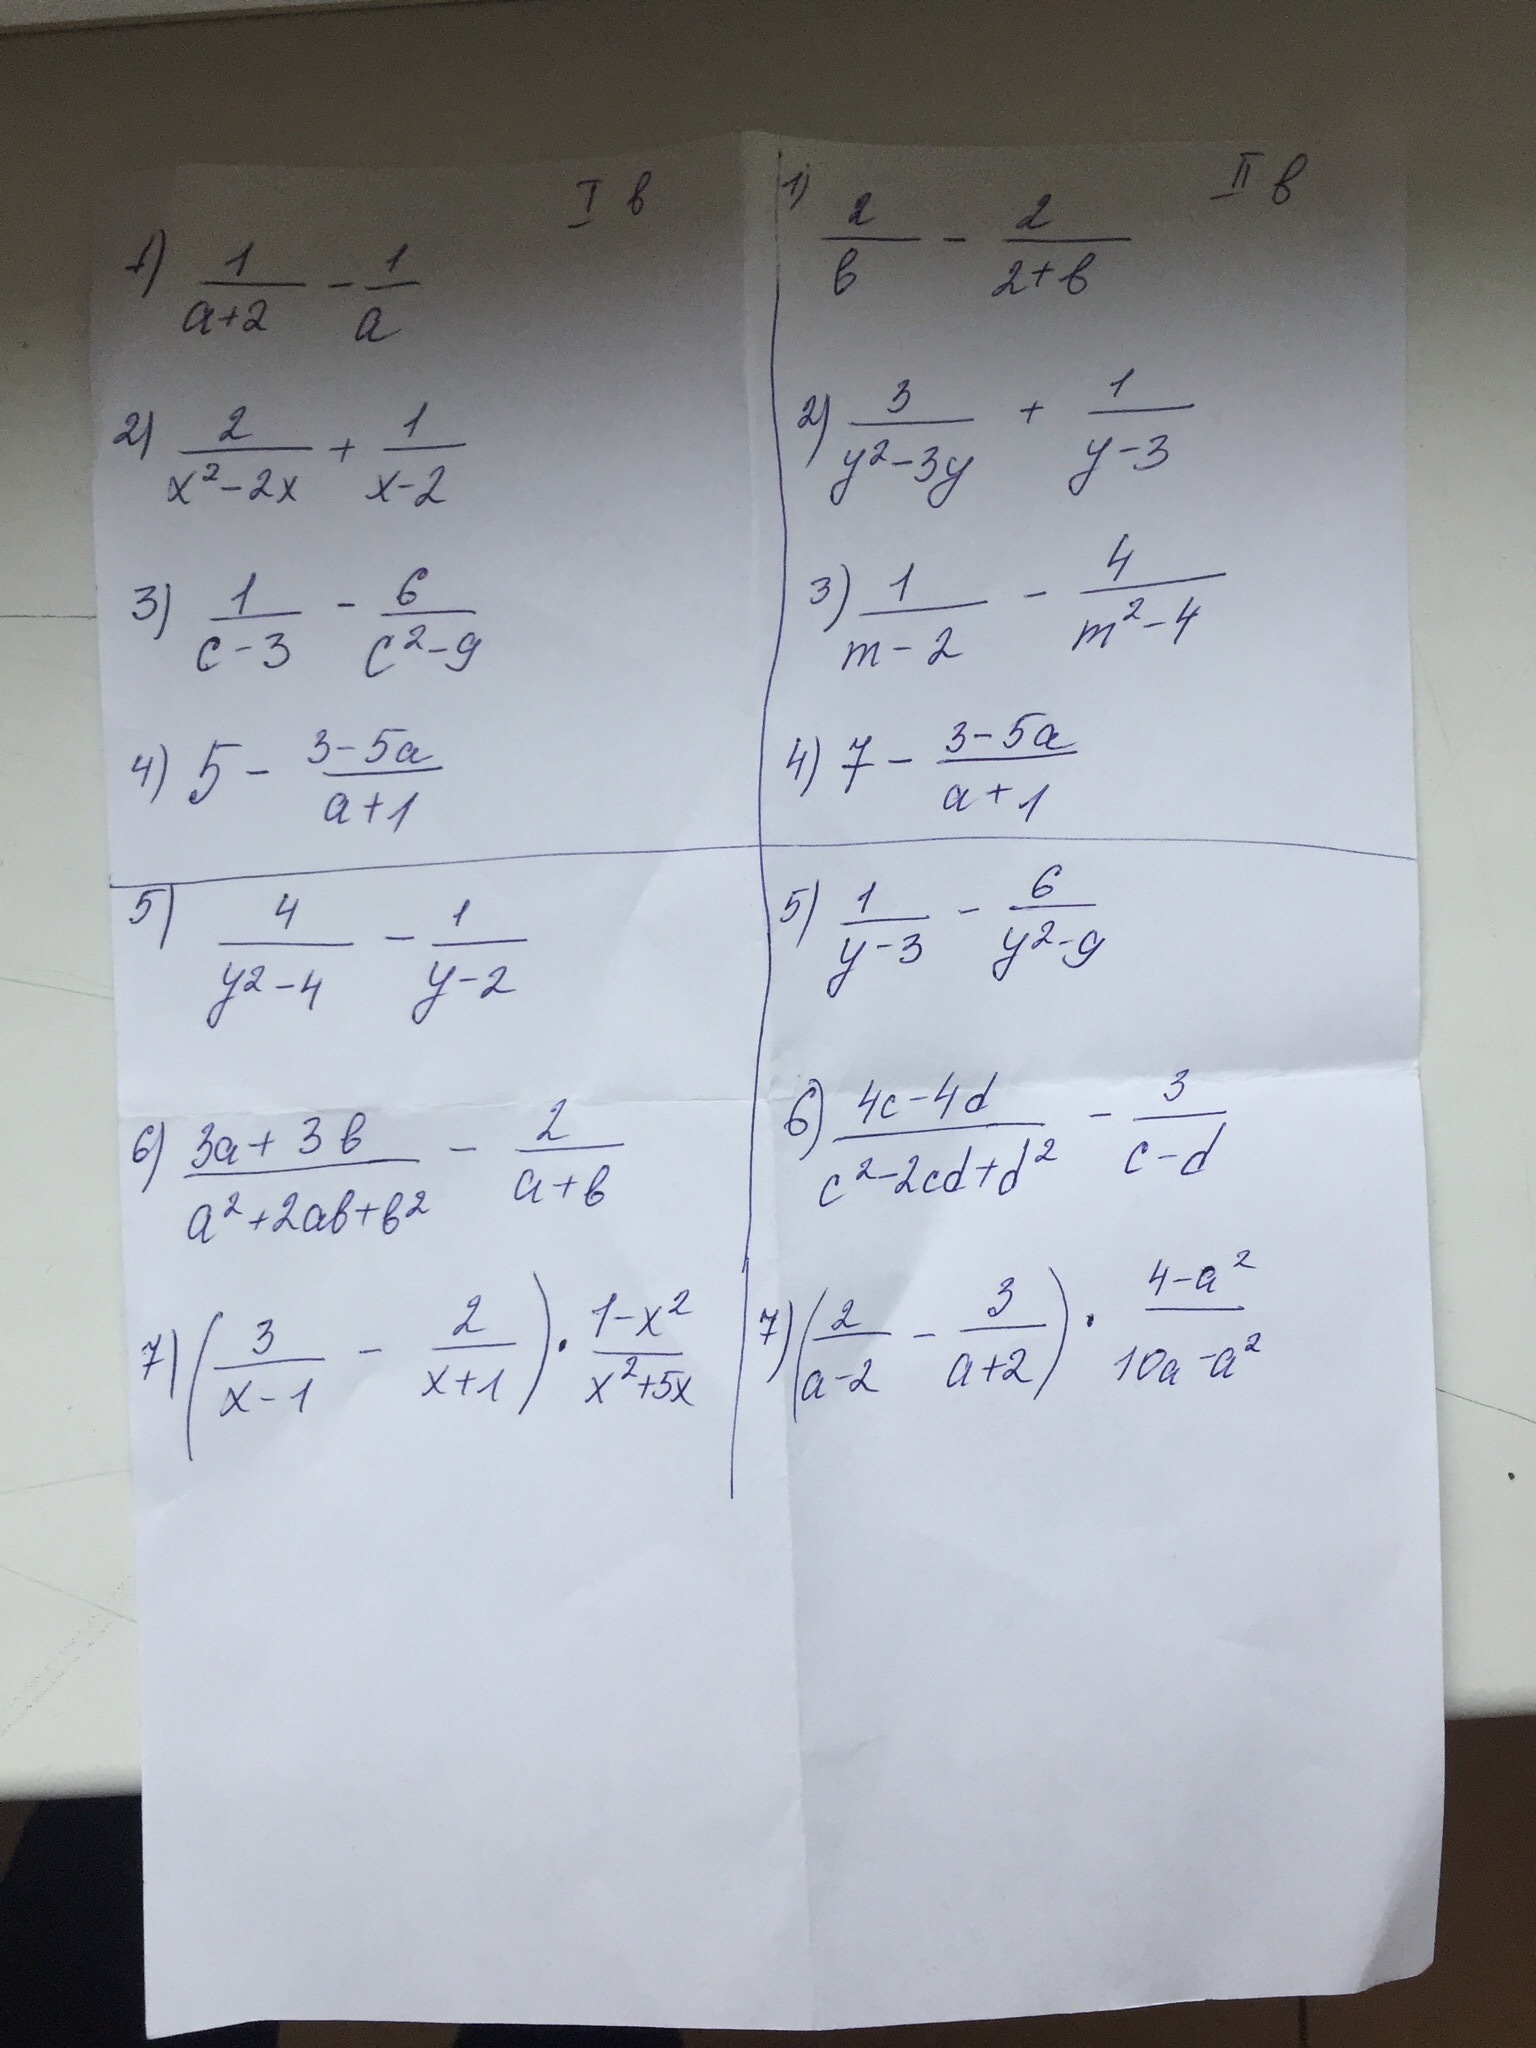 I в
1) 1/(a+2) - 1/a
2) 2/(x²-2x) + 1/(x-2)
3) 1/(c-3) - 6/(c²-9)
4) 5 - (3-5a)/(a+1)
5) 4/(y²-4) - 1/(y-2)
6) (3a+3b)/(a²+2ab+b²) - 2/(a+b)
7) (3/(x-1) - 2/(x+1)) · (1-x²)/(x²+5x)
II в
1) 2/b - 2/(2+b)
2) 3/(y²-3y) + 1/(y-3)
3) 1/(m-2) - 4/(m²-4)
4) 7 - (3-5a)/(a+1)
5) 1/(y-3) - 6/(y²-9)
6) (4c-4d)/(c²-2cd+d²) - 3/(c-d)
7) (2/(a-2) - 3/(a+2)) · (4-a²)/(10a-a²)